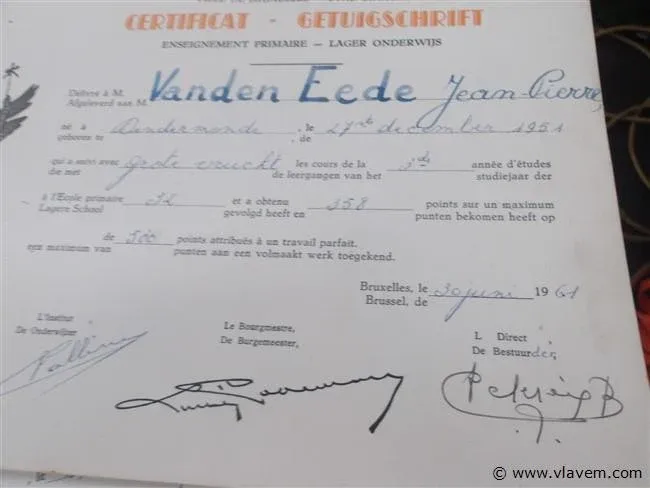 CERTIFICAT - GETUIGSCHRIFT
ENSEIGNEMENT PRIMAIRE — LAGER ONDERWIJS
Délivré à M. Vanden Eede Jean-Pierre
Afgeleverd aan M.
né à Dendermonde, le 27ste december 1951
geboren te , de
qui a suivi avec grote vrucht les cours de la 3de année d'études
die met de leergangen van het studiejaar der
à l'Ecole primaire 32 et a obtenu 358 points sur un maximum
Lagere School gevolgd heeft en punten bekomen heeft op
de 500 points attribués à un travail parfait.
een maximum van punten aan een volmaakt werk toegekend.
Bruxelles, le 30 juni 1961
Brussel, de
L'Institut
De Onderwijzer
Le Bourgmestre,
De Burgemeester,
L Direct
De Bestuurder,
© www.vlavem.com